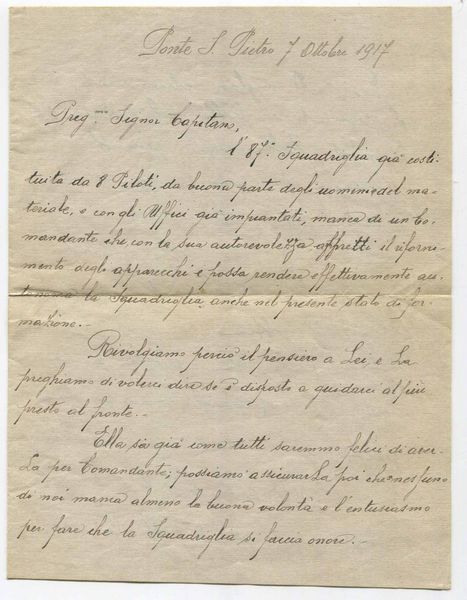 Ponte S. Pietro 7 Ottobre 1917
Preg.mo Signor Capitano,
l'87.a Squadriglia già costi-
tuita da 8 Piloti, da buona parte degli uomini e del ma-
teriale, e con gli Uffici già impiantati, manca di un Co-
mandante che, con la sua autorevolezza affretti il riforni-
mento degli apparecchi e possa rendere effettivamente au-
tonoma la Squadriglia, anche nel presente stato di for-
mazione.-
Rivolgiamo perciò il pensiero a Lei e La
preghiamo di volerci dire se è disposto a guidarci al più
presto al fronte.-
Ella sa già come tutti saremmo felici di aver-
La per Comandante; possiamo assicurarLa poi che a nessuno
di noi manca almeno la buona volontà e l'entusiasmo
per fare che la Squadriglia si faccia onore.-